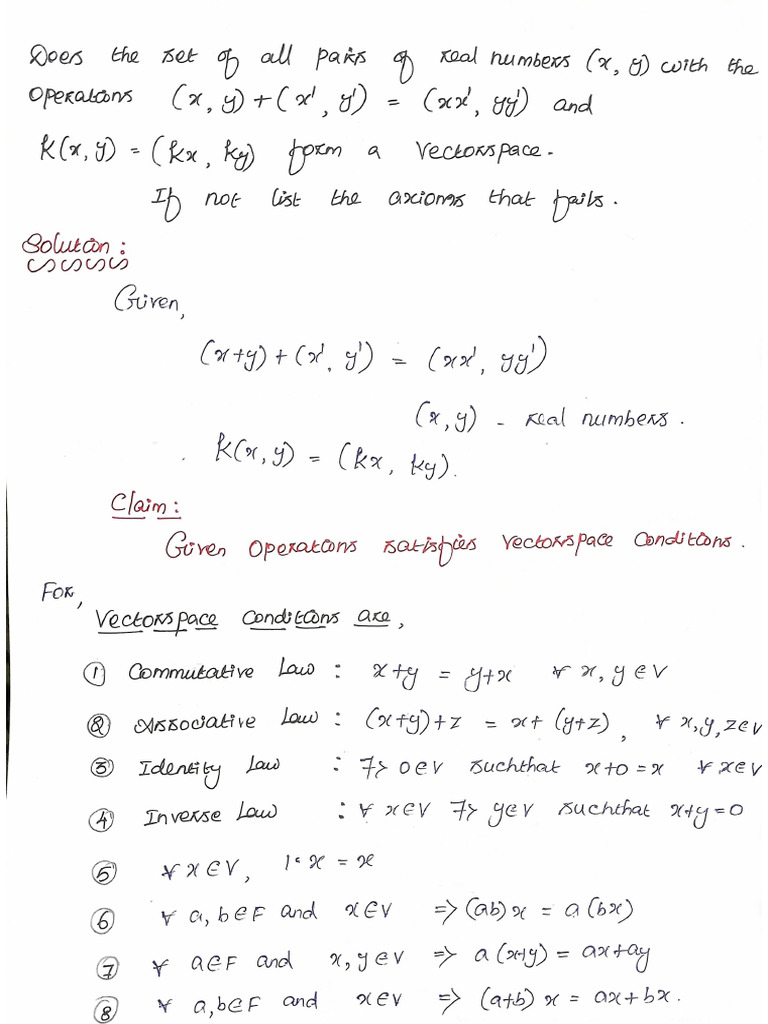 Does the set of all pairs of real numbers (x, y) with the
operations (x, y) + (x', y') = (xx', yy') and
k(x, y) = (kx, ky) form a vectorspace.
If not list the axioms that fails.
Solution:
Given,
(x+y) + (x', y') = (xx', yy')
(x, y) - real numbers.
k(x, y) = (kx, ky).
Claim:
Given operations satisfies vectorspace conditions.
For,
Vectorspace conditions are,
① Commutative Law : x+y = y+x ∀ x, y ∈ V
② Associative Law : (x+y)+z = x+ (y+z), ∀ x,y,z∈V
③ Identity Law : ∃ 0∈V suchthat x+0=x ∀ x∈V
④ Inverse Law : ∀ x∈V ∃ y∈V suchthat x+y=0
⑤ ∀ x∈V, 1·x = x
⑥ ∀ a, b∈F and x∈V => (ab)x = a(bx)
⑦ ∀ a∈F and x, y∈V => a(x+y) = ax+ay
⑧ ∀ a,b∈F and x∈V => (a+b)x = ax+bx.